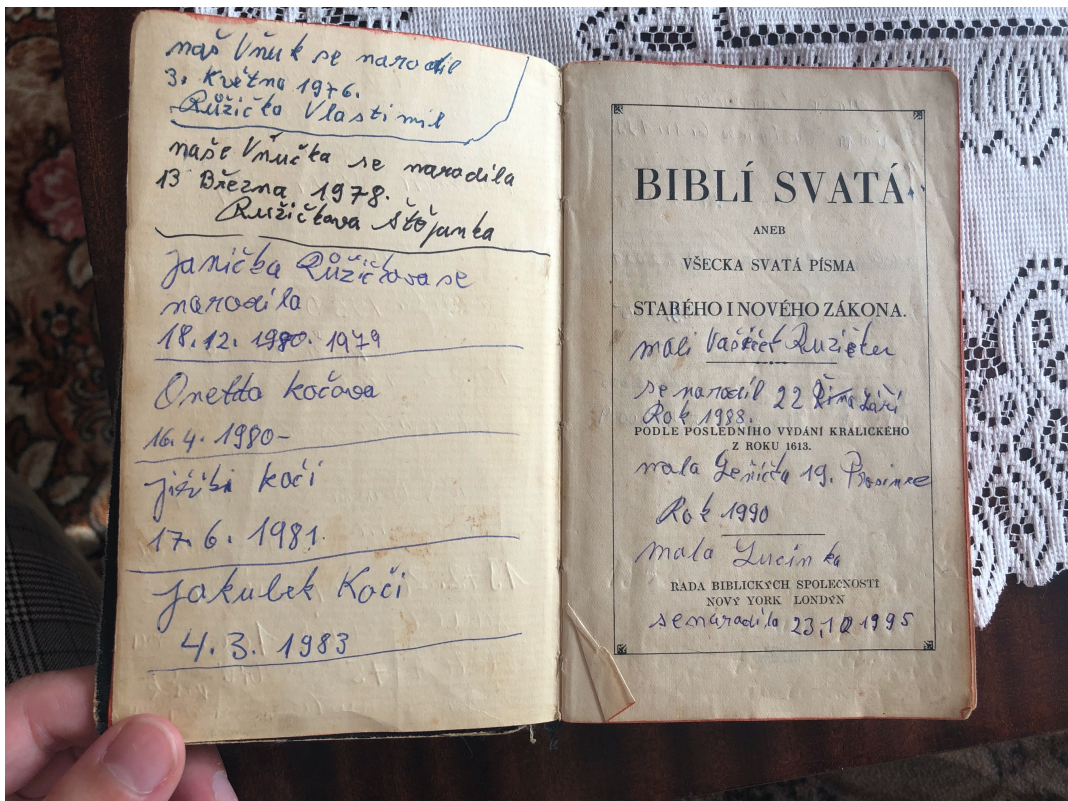 naš Vňuk se narodil
3. Května 1976.
Růžičko Vlastimil
naše Vňučka se narodila
13 Března 1978.
Ružičkova Štěpanka
Janička Růžičkova se
narodila
18.12. 1980. 1979
Onetta kočova
16.4. 1980-
Jiřiki koči
17.6. 1981.
Jakubek Koči
4.3. 1983
BIBLÍ SVATÁ
ANEB
VŠECKA SVATÁ PÍSMA
STARÉHO I NOVÉHO ZÁKONA.
mali Vašiček Ružičku
se narodil 22 Září
Rok 1988.
PODLE POSLEDNÍHO VYDÁNÍ KRALICKÉHO
Z ROKU 1613.
mala Ženička 19. Prosince
Rok 1990
mala Lucinka
RADA BIBLICKÝCH SPOLEČNOSTÍ
NOVÝ YORK LONDÝN
se naradila 23,10 1995